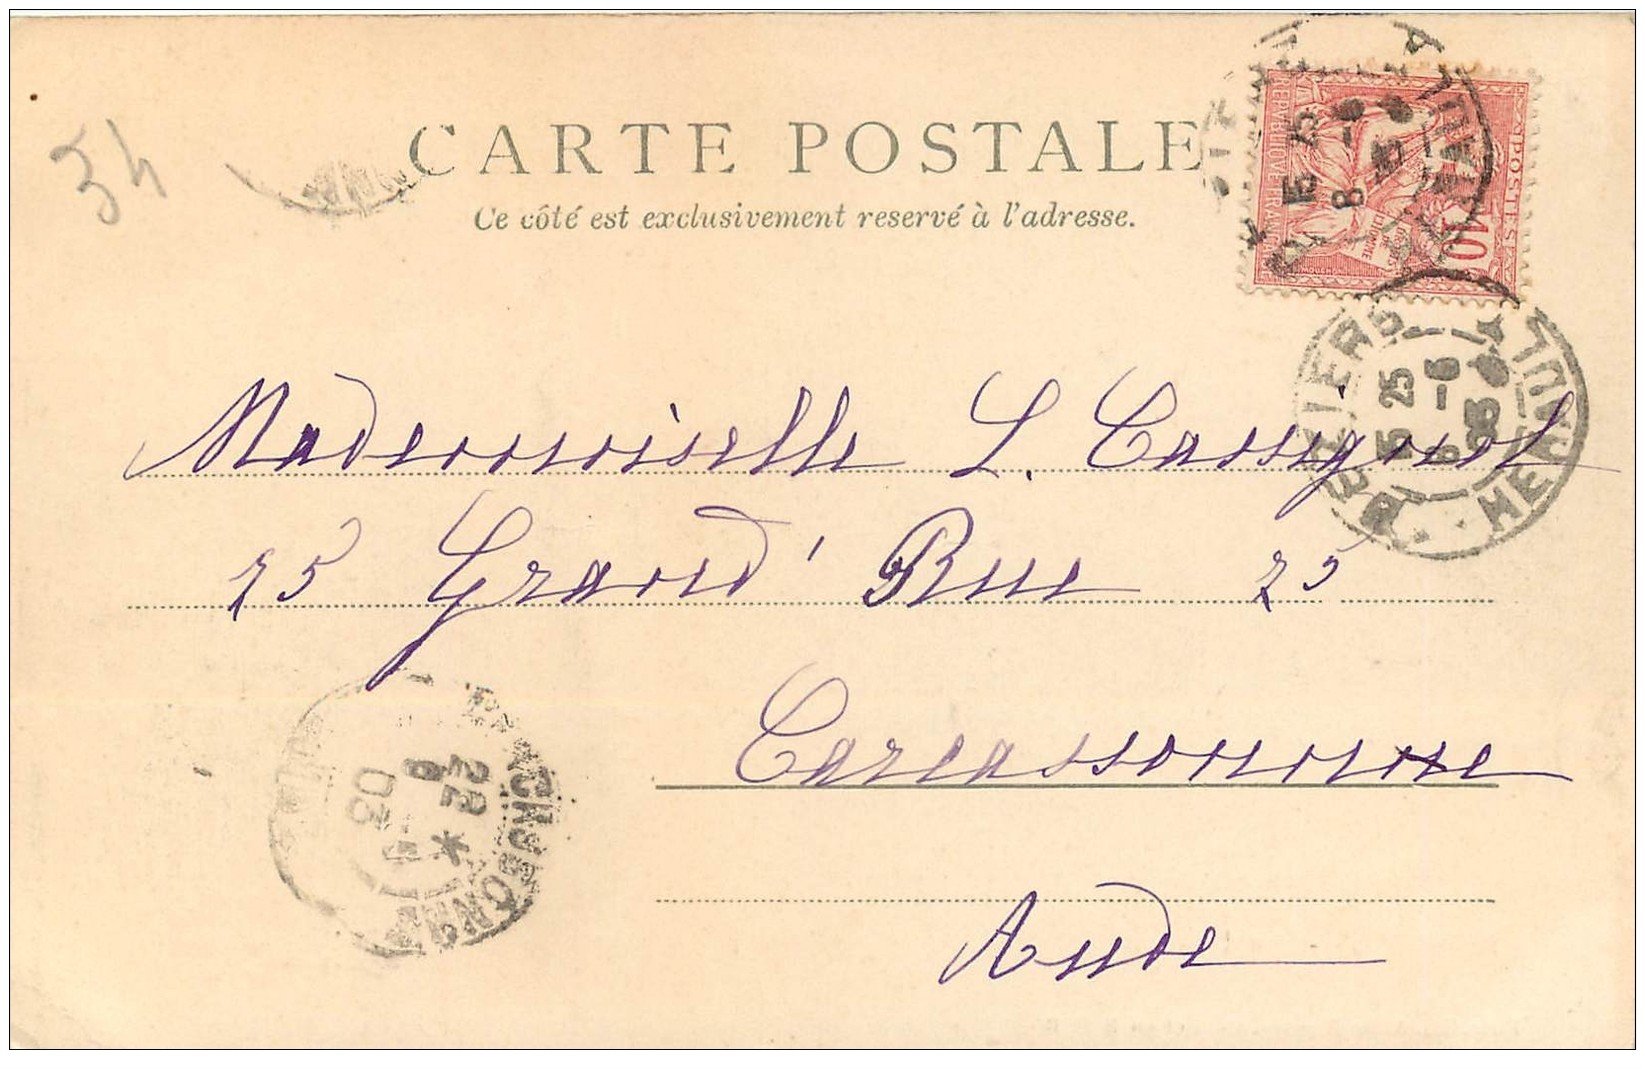 54
CARTE POSTALE
Ce côté est exclusivement reservé à l'adresse.
REPUBLIQUE FRANÇAISE
POSTES
10
DROITS DE L'HOMME
MOUCHON
15 25
8 -6
03
BEZIERS HERAULT
15 25
8 -6
03
Mademoiselle L. Cassignol
25 Grand' Rue 25
Carcassonne
Aude
CARCASSONNE
22 *
9 -6
03